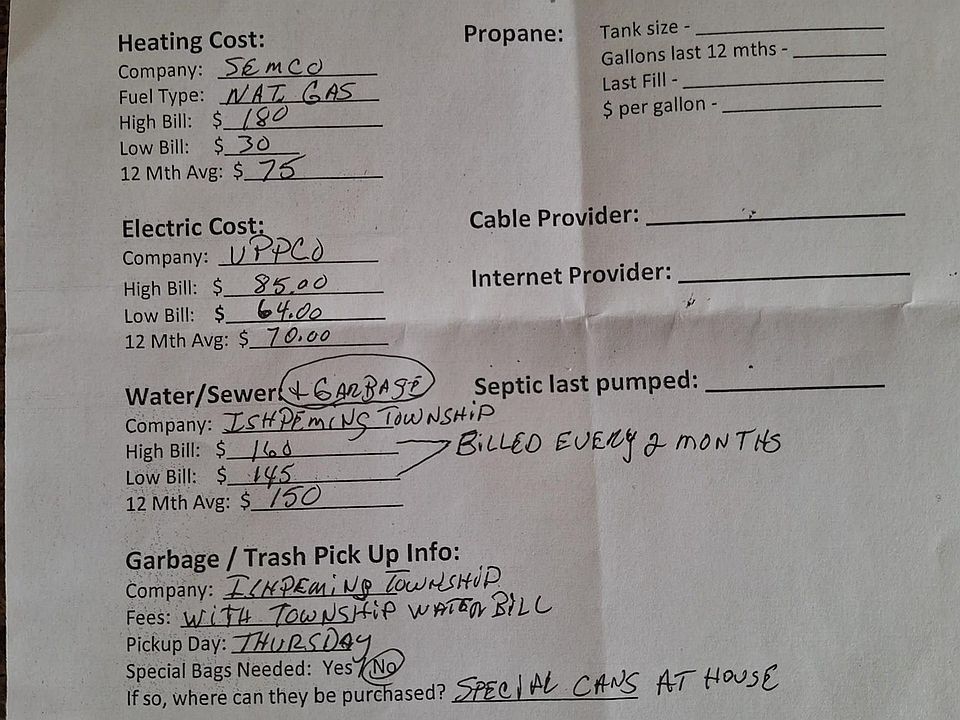 Heating Cost:
Company: SEMCO
Fuel Type: NAT. GAS
High Bill: $ 180
Low Bill: $ 30
12 Mth Avg: $ 75
Propane:
Tank size -
Gallons last 12 mths -
Last Fill -
$ per gallon -
Electric Cost:
Company: UPPCO
High Bill: $ 85.00
Low Bill: $ 64.00
12 Mth Avg: $ 70.00
Cable Provider:
Internet Provider:
Water/Sewer: + GARBAGE
Company: ISHPEMING TOWNSHIP
High Bill: $ 160
Low Bill: $ 145
12 Mth Avg: $ 150
BILLED EVERY 2 MONTHS
Septic last pumped:
Garbage / Trash Pick Up Info:
Company: ISHPEMING TOWNSHIP
Fees: WITH TOWNSHIP WATER BILL
Pickup Day: THURSDAY
Special Bags Needed: Yes / No
If so, where can they be purchased? SPECIAL CANS AT HOUSE